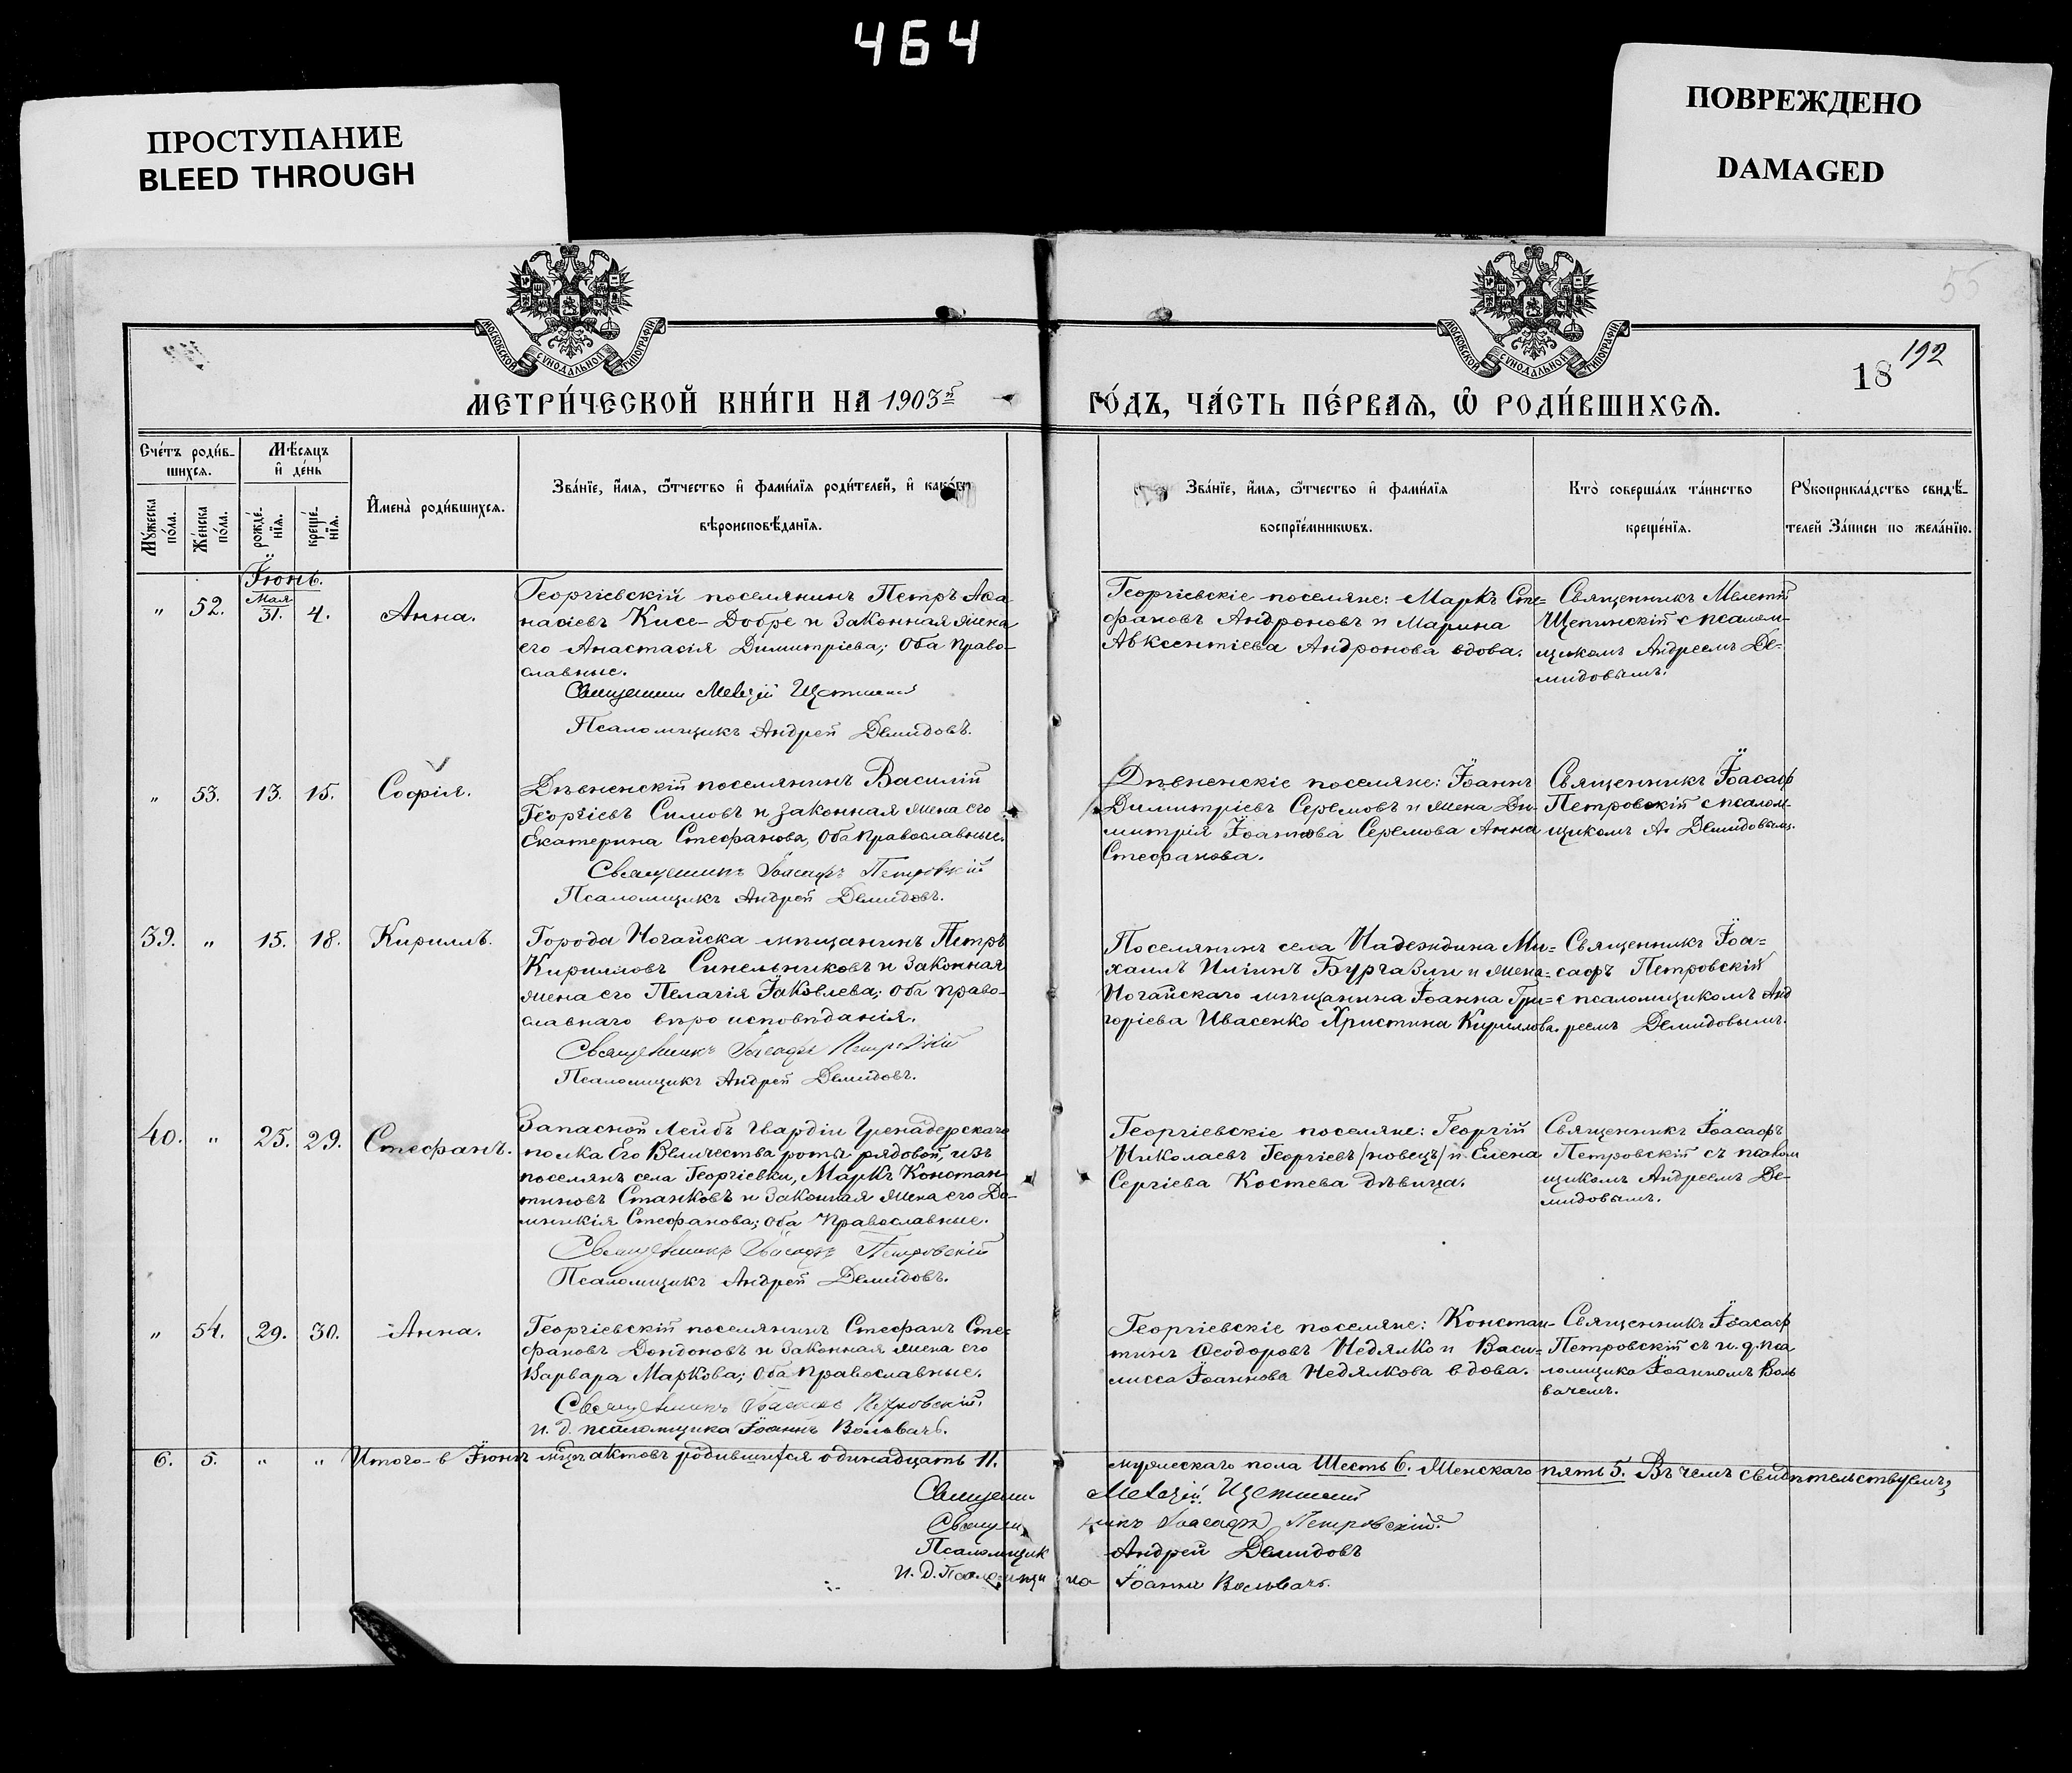 464
ПРОСТУПАНИЕ
BLEED THROUGH
ПОВРЕЖДЕНО
DAMAGED
55
МОСКОВСКОЙ СУНОДАЛЬНОЙ ТИПОГРАФІИ
МОСКОВСКОЙ СУНОДАЛЬНОЙ ТИПОГРАФІИ
18 192
МЕТРИ́ЧЕСКОЙ КНИ́ГИ НА 1903й ГО́ДЪ, ЧА́СТЬ ПЕ́РВАѦ, Ѡ РОДИ́ВШИХСѦ.
Сче́тъ роди́в-
шихсѧ.
Мѣсѧцъ
и де́нь
Му́жеска
по́ла.
Же́нска
по́ла.
рожде́-
нїѧ.
креще́-
нїѧ.
Имена̀ роди́вшихсѧ.
Зва́нїе, и́мѧ, ѻ́тчество и фами́лїѧ роди́телей, и како́вы
вѣроисповѣ́данїѧ.
Зва́нїе, и́мѧ, ѻ́тчество и фами́лїѧ
воспрїе́мникѡвъ.
Кто̀ соверша́лъ та́инство
креще́нїѧ.
Рꙋкоприкла́дство свидѣ́-
телей За́писи по жела́нїю.
Іюнь.
„ 52. Мая 31. 4. Анна.
Георгіевскій поселянинъ Петръ Аѳа-
насіевъ Кисе-Добре и законная жена
его Анастасія Димитріева; оба право-
славные.
Священникъ Мелетій Щепинскій
Псаломщикъ Андрей Демидовъ.
Георгіевскіе поселяне: Маркъ Сте-
фановъ Андроновъ и Марина
Авксентіева Андронова вдова.
Священникъ Мелетій
Щепинскій с псалом-
щикомъ Андреемъ Де-
мидовымъ.
„ 53. 13. 15. Софія.
Дѣвненскій поселянинъ Василій
Георгіевъ Симовъ и законная жена его
Екатерина Стефанова, оба православные.
Священникъ Іоасафъ Петровскій
Псаломщикъ Андрей Демидовъ.
Дѣвненскіе поселяне: Іоаннъ
Димитріевъ Серемовъ и жена Ди-
митрія Іоаннова Серемова Анна
Стефанова.
Священникъ Іоасафъ
Петровскій с псалом-
щикомъ А. Демидовымъ.
39. „ 15. 18. Кириллъ.
Города Ногайска мѣщанинъ Петръ
Кирилловъ Синельниковъ и законная
жена его Пелагія Іаковлева; оба право-
славнаго вѣроисповѣданія.
Священникъ Іоасафъ Петровскій
Псаломщикъ Андрей Демидовъ.
Поселянинъ села Надеждина Ми-
хаилъ Иліинъ Бургазли и жена
Ногайскаго мѣщанина Іоанна Гри-
горіева Ивасенко Христина Кириллова.
Священникъ Іоа-
сафъ Петровскій
с псаломщикомъ Анд
реемъ Демидовымъ.
40. „ 25. 29. Стефанъ.
Запасной Лейбъ Гвардіи Гренадерскаго
полка Его Величества роты рядовой, изъ
поселянъ села Георгіевки, Маркъ Констан-
тиновъ Станковъ и законная жена его До-
мникія Стефанова; оба православные.
Священникъ Іоасафъ Петровскій
Псаломщикъ Андрей Демидовъ.
Георгіевскіе поселяне: Георгій
Николаевъ Георгіевъ /новецъ/ и Елена
Сергіева Костева дѣвица.
Священникъ Іоасафъ
Петровскій съ псалом
щикомъ Андреемъ Де-
мидовымъ.
„ 54. 29. 30. Анна.
Георгіевскій поселянинъ Стефанъ Сте-
фановъ Дондоновъ и законная жена его
Варвара Маркова; оба православные.
Священникъ Іоасафъ Петровскій.
И. д. псаломщика Іоаннъ Вольвачъ.
Георгіевскіе поселяне: Констан-
тинъ Ѳеодоровъ Недялко и Васи-
лисса Іоаннова Недялкова вдова.
Священникъ Іоасаф
Петровскій съ и. д. пса
ломщика Іоанномъ Воль
вачемъ.
6. 5. „ „ Итого в Іюнѣ мцѣ актовъ родившихся одинадцать 11. мужескаго пола Шесть 6. Женскаго пять 5. Въ чемъ свидѣтельствуемъ,
Священникъ Мелетій Щепинскій
Священникъ Іоасафъ Петровскій
Псаломщик Андрей Демидовъ
И. д. Псаломщика Іоаннъ Вольвачъ.